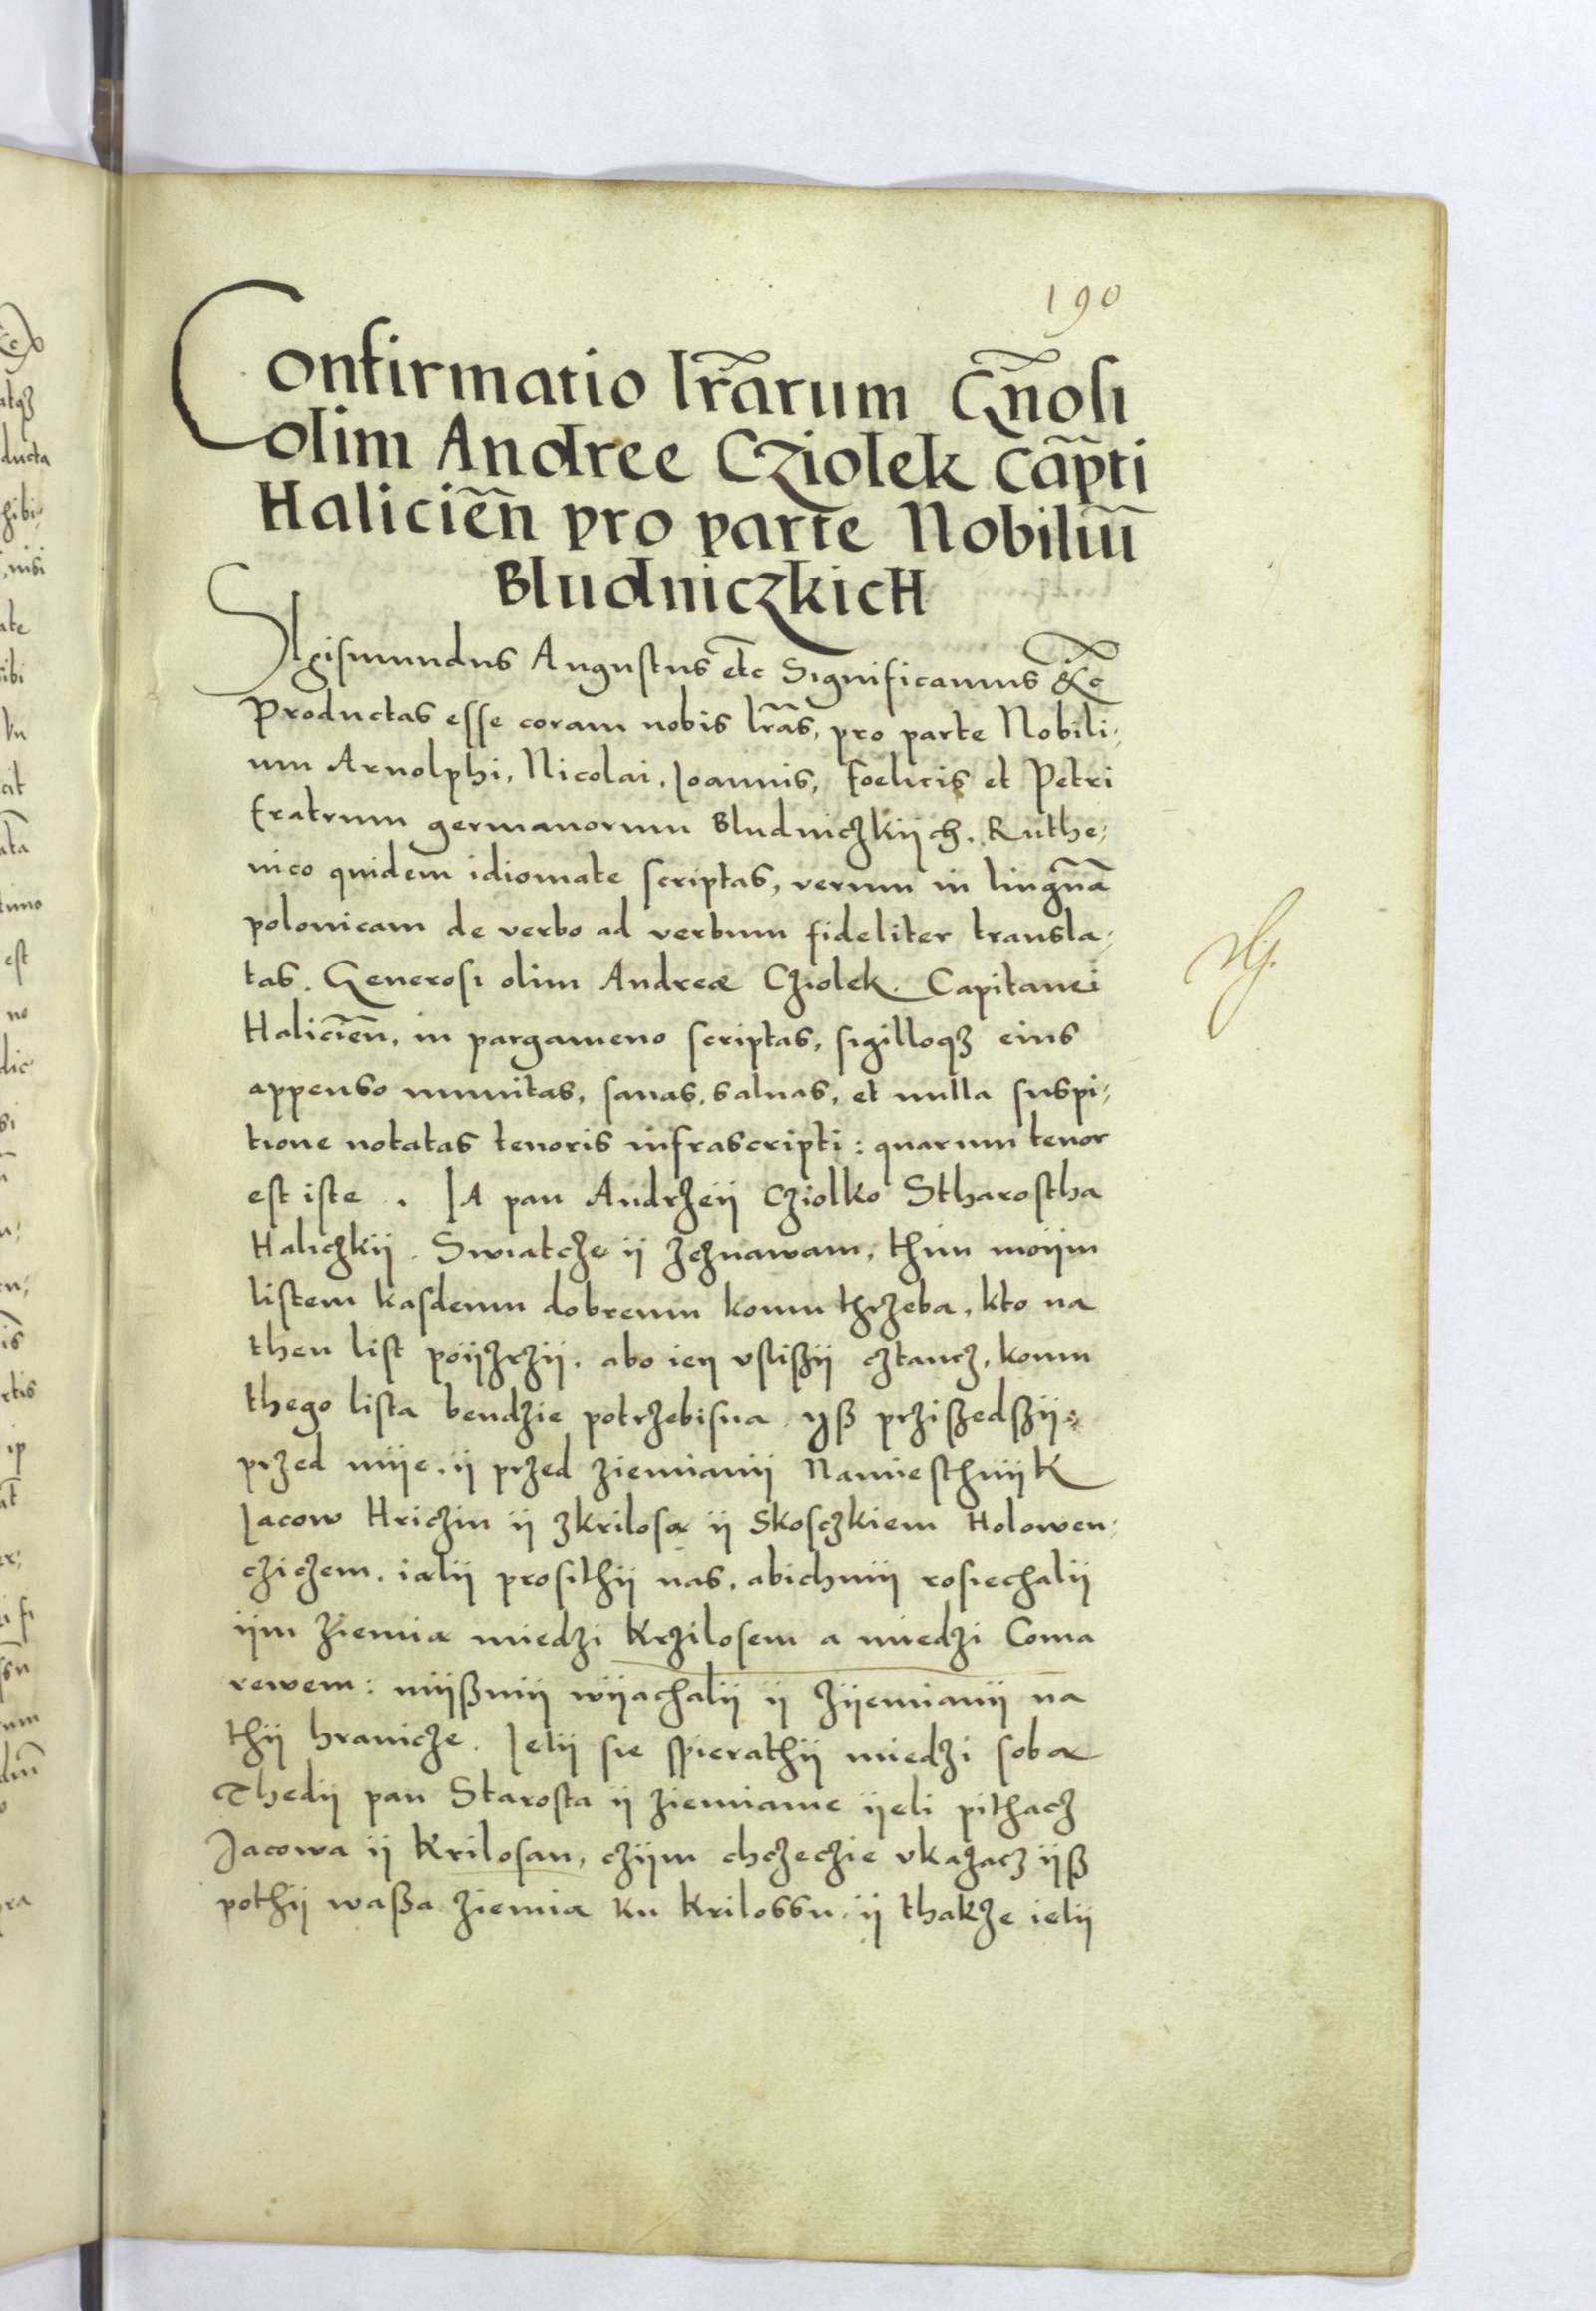 190
Confirmatio lr̃arum Gñosi
olim Andree Cziolek Cap̃ti
Halicieñ pro parte Nobiliũ
Bludniczkich
Sigismundus Augustus etc̃ Significamus &c̃
Productas esse coram nobis lr̃as, pro parte Nobili,
um Arnolphi, Nicolai, Joannis, Foelicis et Petri
fratrum germanorum Bludniczkijch. Ruthe,
nico quidem idiomate scriptas, verum in linguã
polonicam de verbo ad verbum fideliter transla,
tas. Generosi olim Andreæ Cziolek. Capitanei
Halicieñ, in pargameno scriptas, sigilloqz eius
appenso munitas, sanas, saluas, et nulla suspi,
tione notatas tenoris infrascripti: quarum tenor
est iste. JA pan Andrzeij Cziolko Stharostha
Haliczkij. Swiatcze ij zeznawam, thim moijm
listem kasdemu dobremu komu thrzeba, kto na
then list poijzrzij. abo ieij vslißij cztancz, komu
thego lista bendzie potrzebisna yß przißedßij:
przed mije. ij przed ziemianij Namiesthnijk
Jacow Hriczin ij zkrilosa ij Skosczkiem Holowen,
cziczem. ialij prosithij nas. abichmij rosiechalij
ijm ziemiæ miedzi Krzilosem a miedzi Coma
rewem: mijßmij wijachalij ij zijemianij na
thij hranicze. Jelij sie spierathij miedzi sobæ
Thedij pan Starosta ij ziemianie ijeli pithacz
Jacowa ij Krilosan, czijm chczeczie vkazacz ijß
pothij waßa ziemiæ ku Krilossu. ij thakze ielij